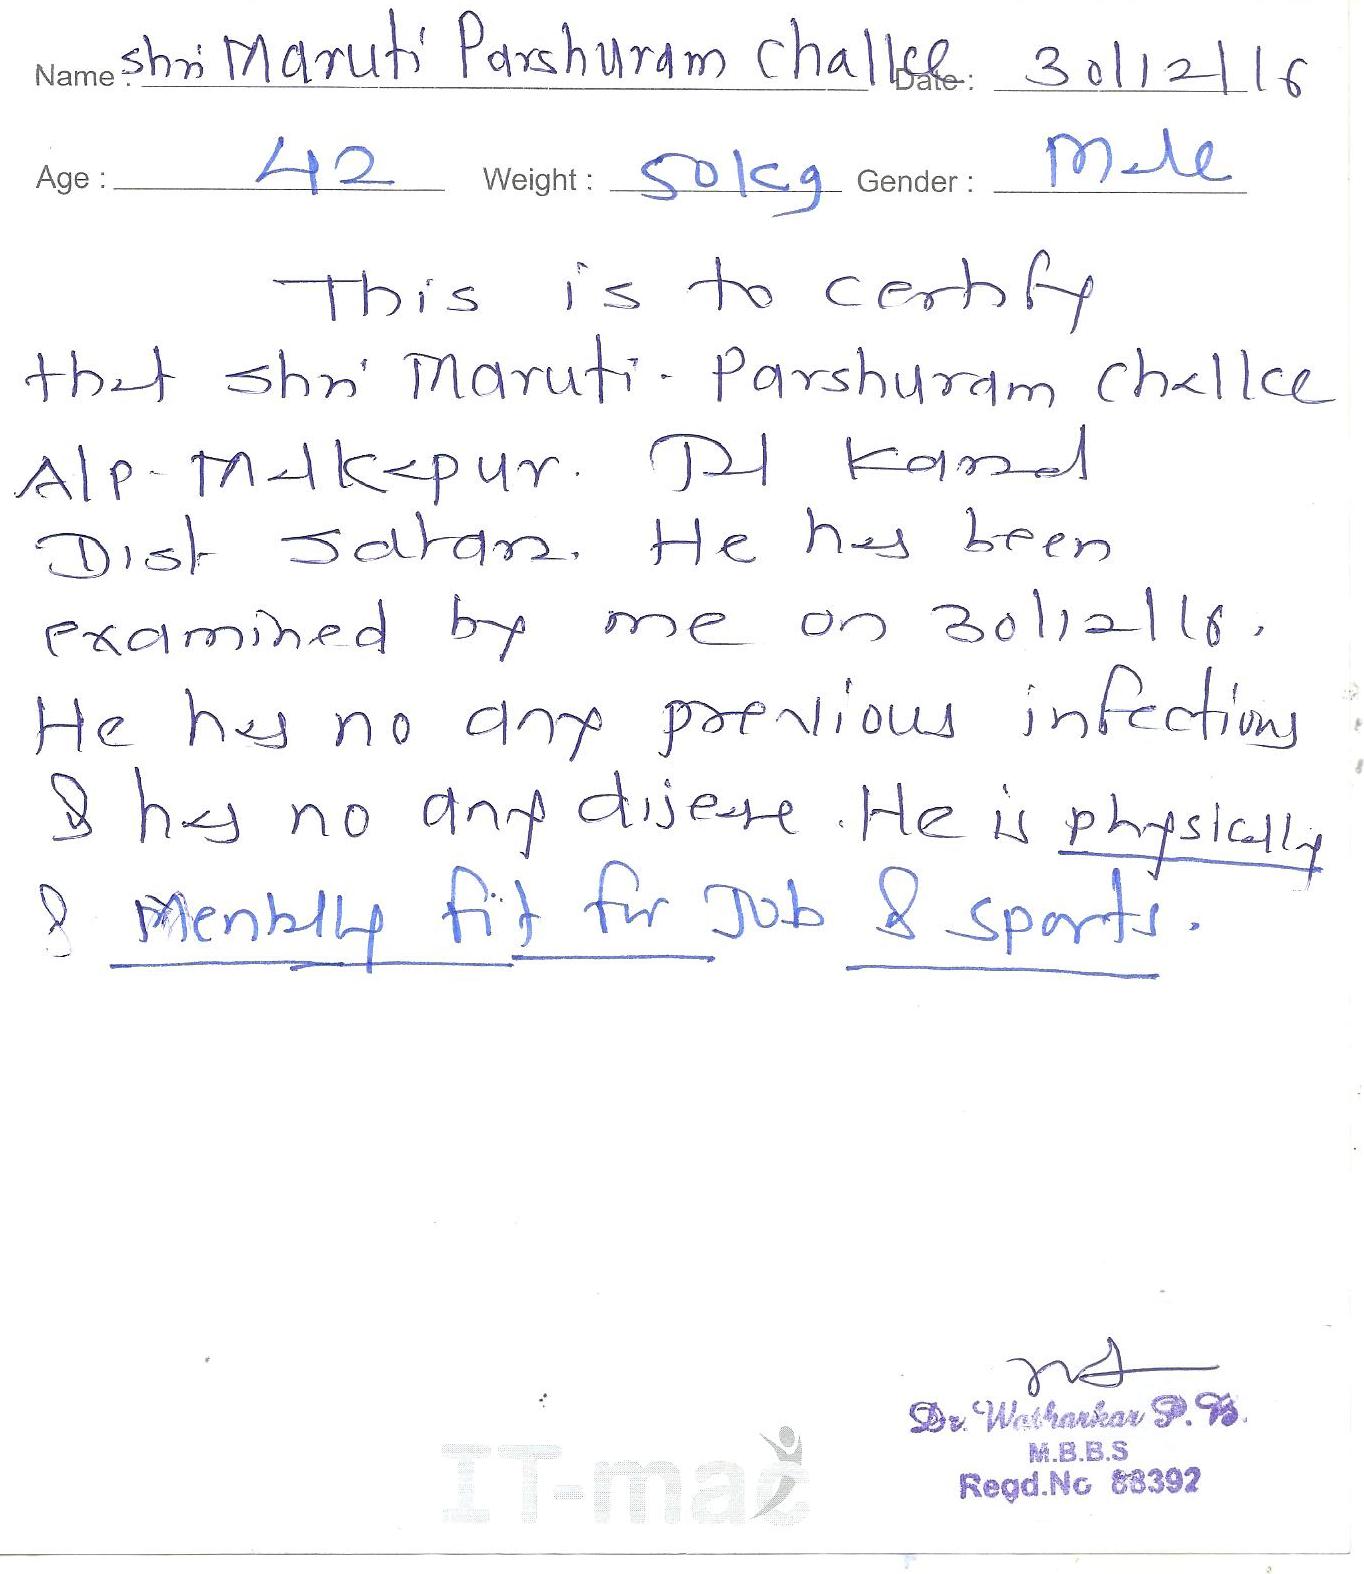 Name : Shri Maruti Parshuram Challce Date : 30/12/16
Age : 42 Weight : 50kg Gender : Male
This is to certify
that Shri Maruti. Parshuram Challce
A/p- Malkapur. Tal Karad
Dist Satara. He has been
examined by me on 30/12/16.
He has no any previous infections
& has no any disease. He is physically
& Mentally fit for Job & sports.
Dr. Watharkar P.B.
M.B.B.S
Regd.No 88392
IT-mac